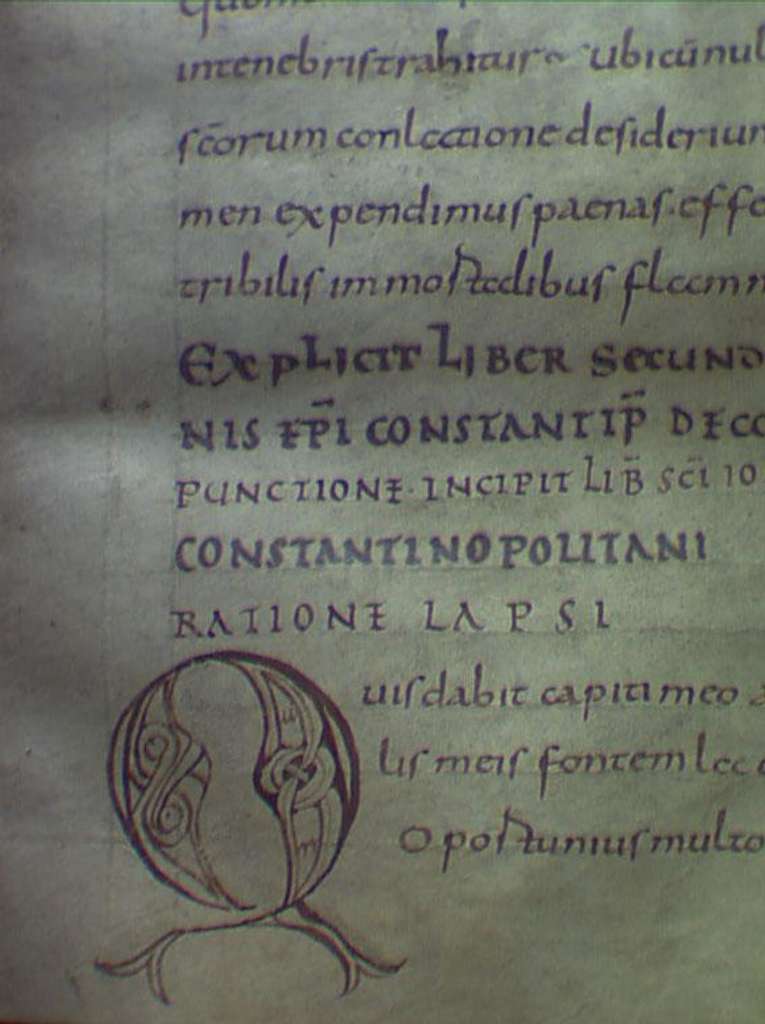 intenebris trahitur ubicūnul
scōrum conlocatione desiderium
men expendimus paenas. effe
tribilis immortedibus flamm
EXPLICIT LIBER SECUND
NIS EP̄I CONSTANTIP̄ DECO
PUNCTIONE· INCIPIT LIB̄ SC̄I IO
CONSTANTINOPOLITANI
RATIONE LAPSI
Quis dabit capiti meo
lis meis fontem lac
oportunius multo